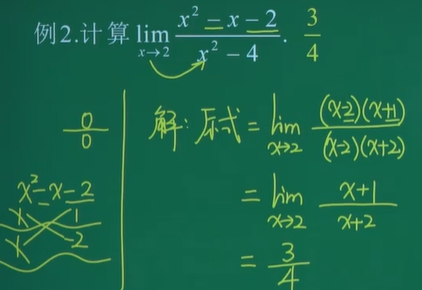 例2.计算 lim x→2 (x² - x - 2)/(x² - 4). 3/4
0/0
x² - x - 2
x 1
x -2
解: 原式 = lim x→2 (x-2)(x+1)/(x-2)(x+2)
= lim x→2 (x+1)/(x+2)
= 3/4